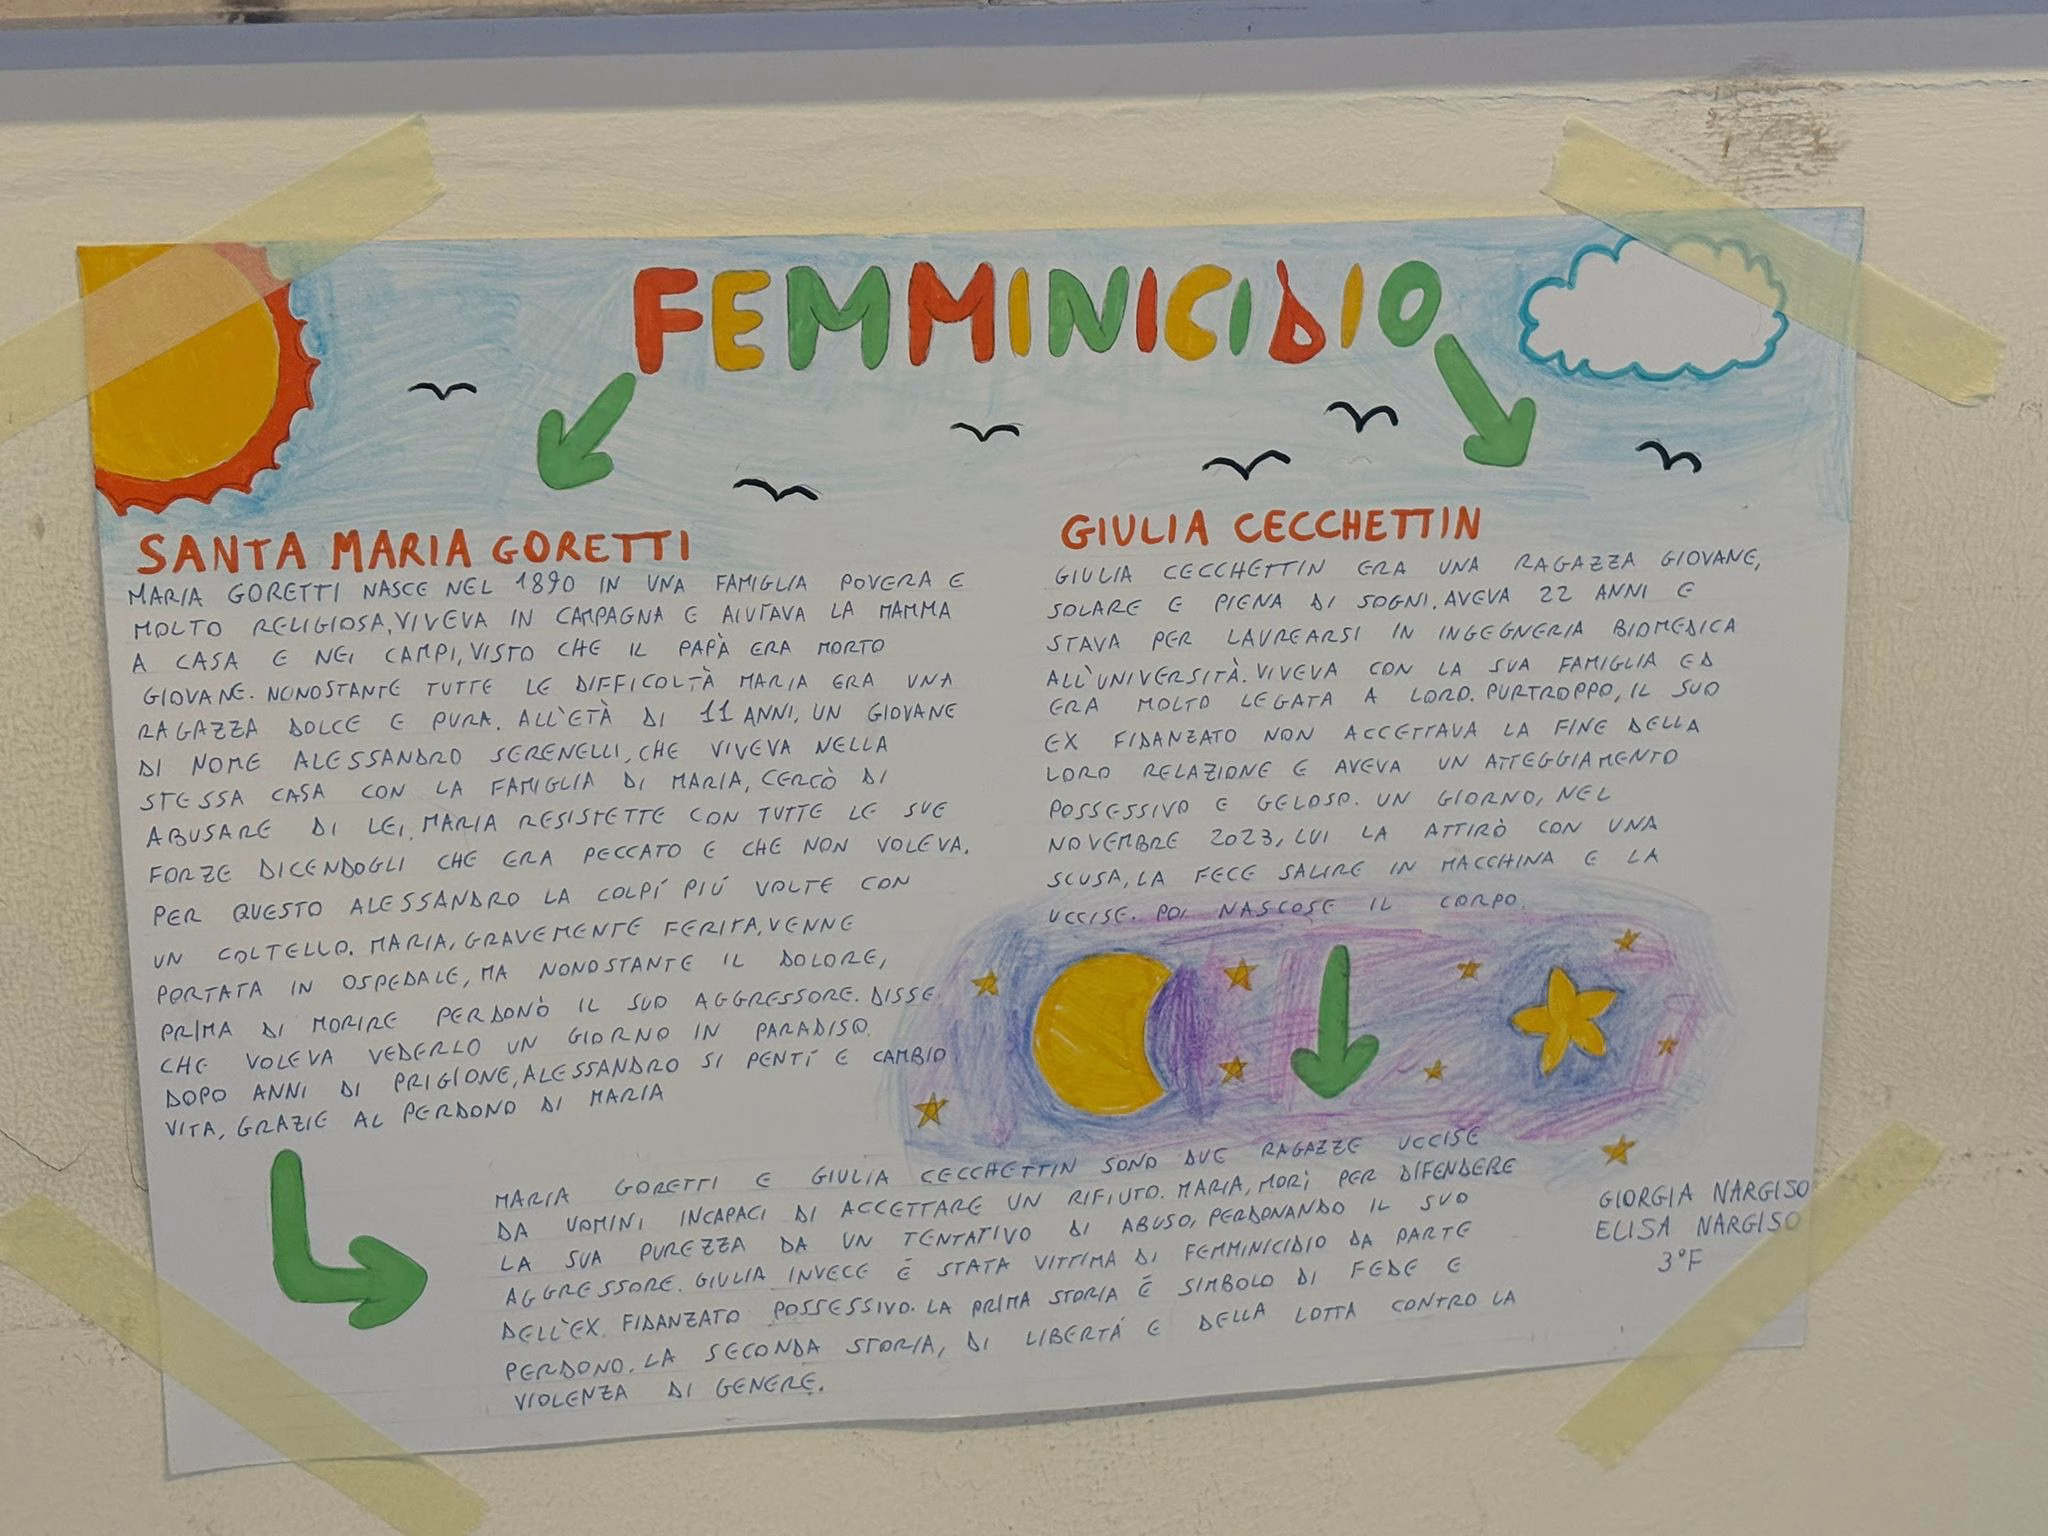 FEMMINICIDIO
SANTA MARIA GORETTI
MARIA GORETTI NASCE NEL 1890 IN UNA FAMIGLIA POVERA E
MOLTO RELIGIOSA, VIVEVA IN CAMPAGNA E AIUTAVA LA MAMMA
A CASA E NEI CAMPI, VISTO CHE IL PAPÀ ERA MORTO
GIOVANE. NONOSTANTE TUTTE LE DIFFICOLTÀ MARIA ERA UNA
RAGAZZA DOLCE E PURA. ALL'ETÀ DI 11 ANNI, UN GIOVANE
DI NOME ALESSANDRO SERENELLI, CHE VIVEVA NELLA
STESSA CASA CON LA FAMIGLIA DI MARIA, CERCÒ DI
ABUSARE DI LEI. MARIA RESISTETTE CON TUTTE LE SUE
FORZE DICENDOGLI CHE ERA PECCATO E CHE NON VOLEVA.
PER QUESTO ALESSANDRO LA COLPÍ PIÚ VOLTE CON
UN COLTELLO. MARIA, GRAVEMENTE FERITA, VENNE
PORTATA IN OSPEDALE, MA NONOSTANTE IL DOLORE,
PRIMA DI MORIRE PERDONÒ IL SUO AGGRESSORE. DISSE
CHE VOLEVA VEDERLO UN GIORNO IN PARADISO.
DOPO ANNI DI PRIGIONE, ALESSANDRO SI PENTÍ E CAMBIO
VITA, GRAZIE AL PERDONO DI MARIA
GIULIA CECCHETTIN
GIULIA CECCHETTIN ERA UNA RAGAZZA GIOVANE,
SOLARE E PIENA DI SOGNI. AVEVA 22 ANNI E
STAVA PER LAUREARSI IN INGEGNERIA BIOMEDICA
ALL'UNIVERSITÀ. VIVEVA CON LA SUA FAMIGLIA ED
ERA MOLTO LEGATA A LORO. PURTROPPO, IL SUO
EX FIDANZATO NON ACCETTAVA LA FINE DELLA
LORO RELAZIONE E AVEVA UN ATTEGGIAMENTO
POSSESSIVO E GELOSO. UN GIORNO, NEL
NOVEMBRE 2023, LUI LA ATTIRÒ CON UNA
SCUSA, LA FECE SALIRE IN MACCHINA E LA
UCCISE. POI NASCOSE IL CORPO.
MARIA GORETTI E GIULIA CECCHETTIN SONO DUE RAGAZZE UCCISE
DA UOMINI INCAPACI DI ACCETTARE UN RIFIUTO. MARIA, MORÌ PER DIFENDERE
LA SUA PUREZZA DA UN TENTATIVO DI ABUSO, PERDONANDO IL SUO
AGGRESSORE. GIULIA INVECE É STATA VITTIMA DI FEMMINICIDIO DA PARTE
DELL'EX. FIDANZATO POSSESSIVO. LA PRIMA STORIA É SIMBOLO DI FEDE E
PERDONO. LA SECONDA STORIA, DI LIBERTÁ E DELLA LOTTA CONTRO LA
VIOLENZA DI GENERE.
GIORGIA NARGISO
ELISA NARGISO
3°F